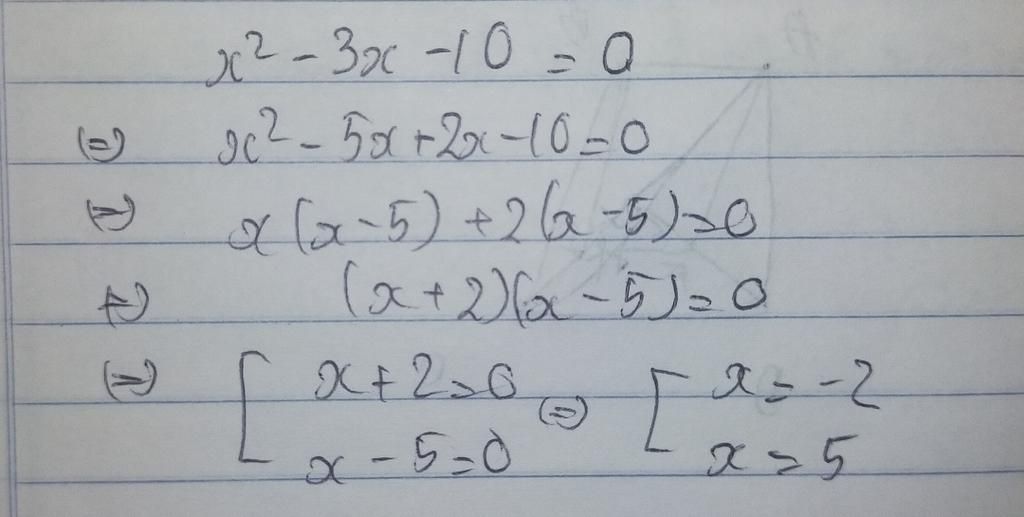 x² - 3x - 10 = 0
⇔ x² - 5x + 2x - 10 = 0
⇔ x(x - 5) + 2(x - 5) = 0
⇔ (x + 2)(x - 5) = 0
⇔ [ x + 2 = 0 ⇔ [ x = -2
x - 5 = 0 x = 5